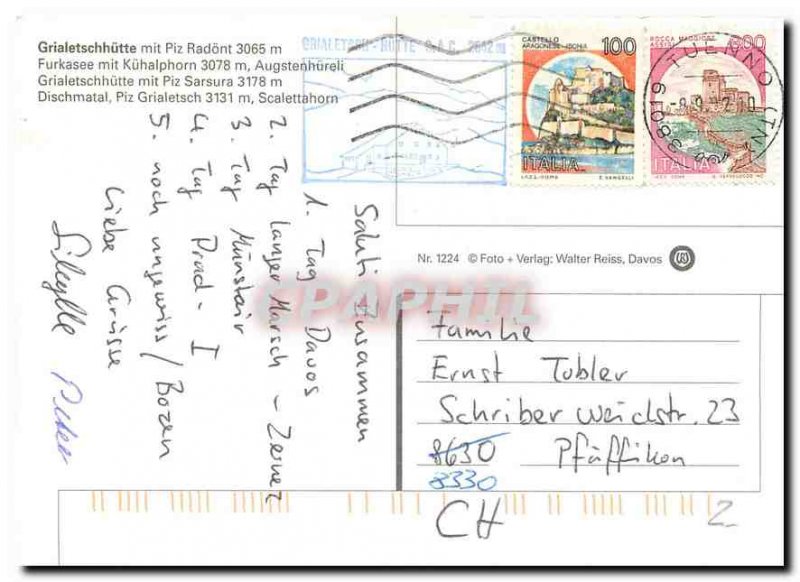 Grialetschhütte mit Piz Radönt 3065 m
Furkasee mit Kühalphorn 3078 m, Augstenhüreli
Grialetschhütte mit Piz Sarsura 3178 m
Dischmatal, Piz Grialetsch 3131 m, Scalettahorn
GRIALETSCH-HÜTTE S.A.C. 2542 m
CASTELLO ARAGONESE - ISCHIA
100
ITALIA
ROCCA MAGGIORE ASSISI
ITALIA
38019 TUENNO (TN)
Saluti Zusammen
1. Tag Davos
2. Tag langer Marsch - Zernez
3. Tag Münstair
4. Tag Prad - I
5. noch ungewiss / Bozen
Liebe Grüsse
Sibylle Peter
Nr. 1224 © Foto + Verlag: Walter Reiss, Davos
CPAPHIL
Familie
Ernst Tobler
Schriber weidstr. 23
8630 Pfäffikon
8330
CH
2.-